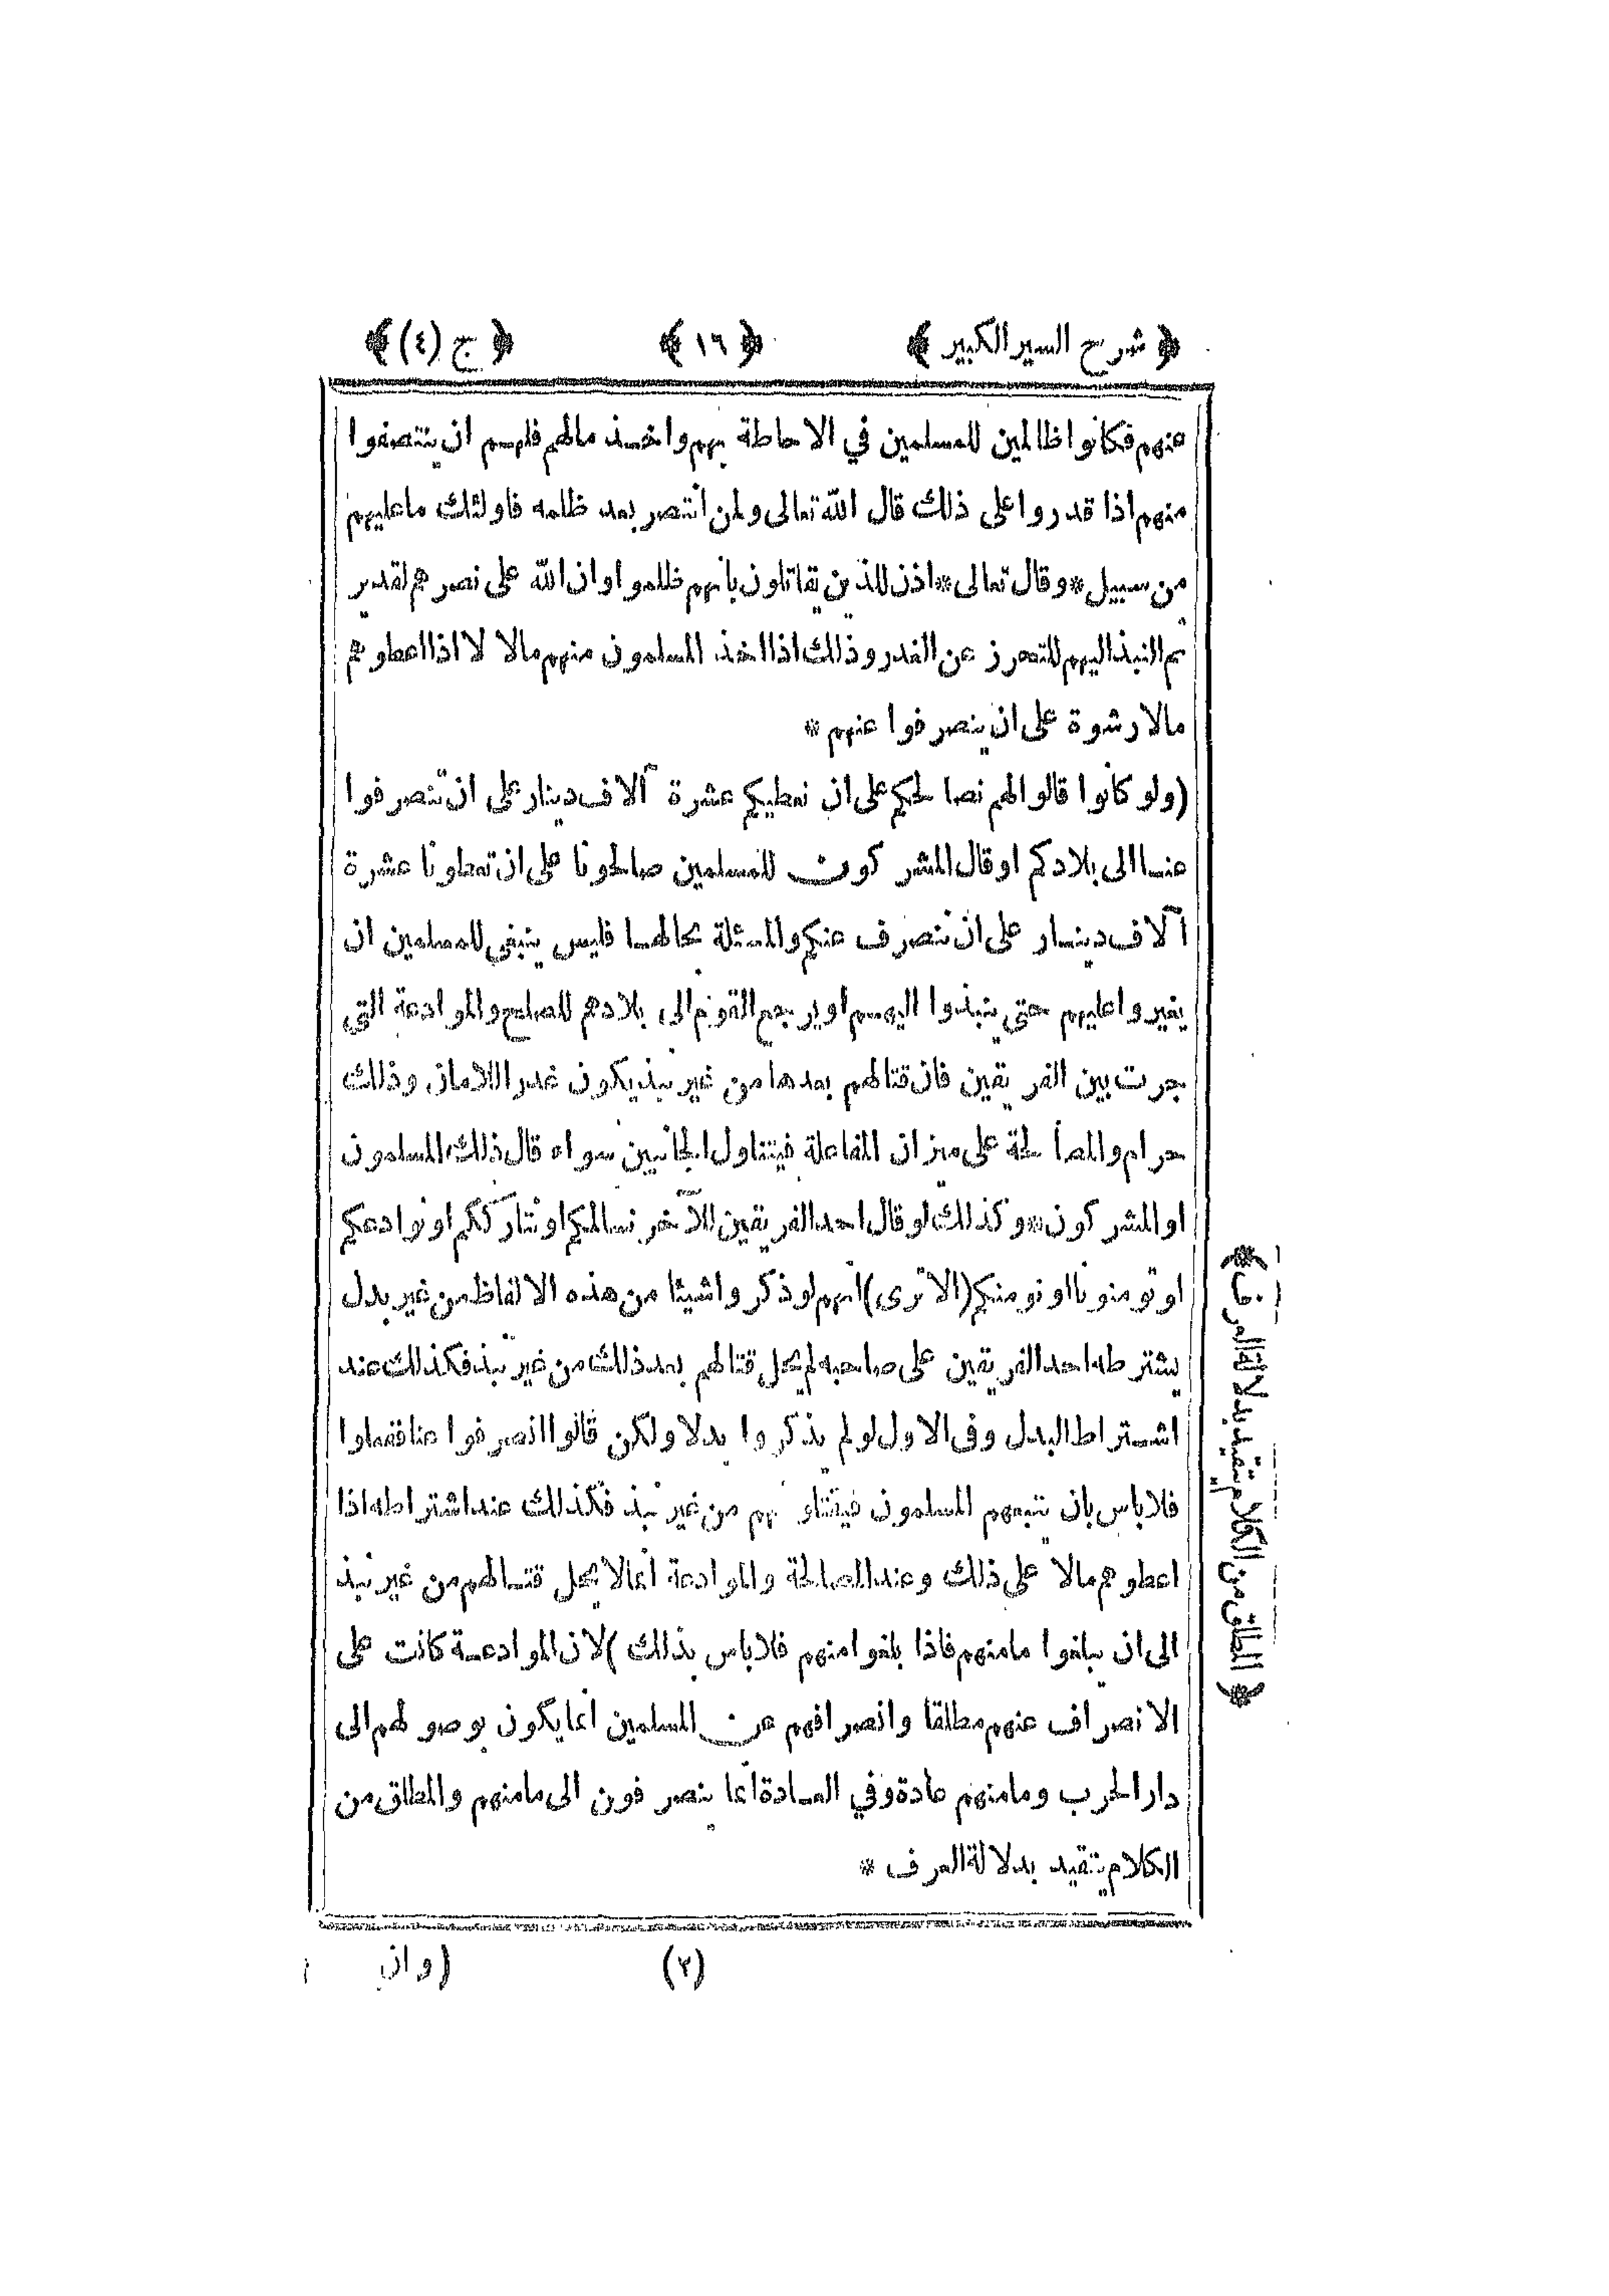 ﴿ شرح السير الكبير ﴾ ﴿ ١٦ ﴾ ﴿ ج (٤) ﴾
عنهم فكانوا ظالمين للمسلمين في الاحاطة بهم واخذ مالهم فلهم ان ينتصفوا
منهم اذا قدروا على ذلك قال الله تعالى ولمن انتصر بعد ظلمه فاولئك ما عليهم
من سبيل * وقال تعالى * اذن للذين يقاتلون بانهم ظلموا وان الله على نصرهم لقدير
ثم النبذ اليهم للتحرز عن الغدر وذلك اذا اخذ المسلمون منهم مالا لا اذا اعطوهم
مالا رشوة على ان ينصرفوا عنهم *
(ولو كانوا قالوا لهم نصالحكم على ان نعطيكم عشرة آلاف دينار على ان تنصرفوا
عنا الى بلادكم او قال المشركون للمسلمين صالحونا على ان تعطونا عشرة
آلاف دينار على ان ننصرف عنكم والمسئلة بحالها فليس ينبغي للمسلمين ان
يغيروا عليهم حتى ينبذوا اليهم او يرجع القوم الى بلادهم للصلح والموادعة التي
جرت بين الفريقين فان قتالهم بعدها من غير نبذ يكون غدرا للامان وذلك
حرام والمصالحة على ميزان المفاعلة فيتناول الجانبين سواء قال ذلك المسلمون
او المشركون * وكذلك لو قال احد الفريقين للآخر نسالمكم او نتارككم او نوادعكم
او تومنونا او نومنكم (الا ترى) انهم لو ذكروا شيئا من هذه الالفاظ من غير بدل
يشترطه احد الفريقين على صاحبه لم يحل قتالهم بعد ذلك من غير نبذ فكذلك عند
اشتراط البدل وفى الاول لو لم يذكروا بدلا ولكن قالوا انصرفوا عنا ففعلوا
فلا باس بان يتبعهم المسلمون فيقتلوهم من غير نبذ فكذلك عند اشتراطه اذا
اعطوهم مالا على ذلك وعند المصالحة والموادعة انما لا يحل قتالهم من غير نبذ
الى ان يبلغوا مامنهم فاذا بلغوا منهم فلا باس بذلك ) لان الموادعة كانت على
الانصراف عنهم مطلقا وانصرافهم عن المسلمين انما يكون بوصولهم الى
دار الحرب ومامنهم عادة وفي العادة انما ينصرفون الى مامنهم والمطلق من
الكلام يتقيد بدلالة العرف *
﴿ المطلق من الكلام يتقيد بدلالة العرف ﴾
(٢) (وان